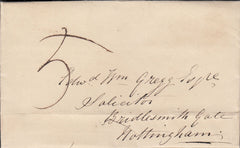 5
Edwd Wm Gregg Esqre
Solicitor
Bridlesmith Gate
Nottingham